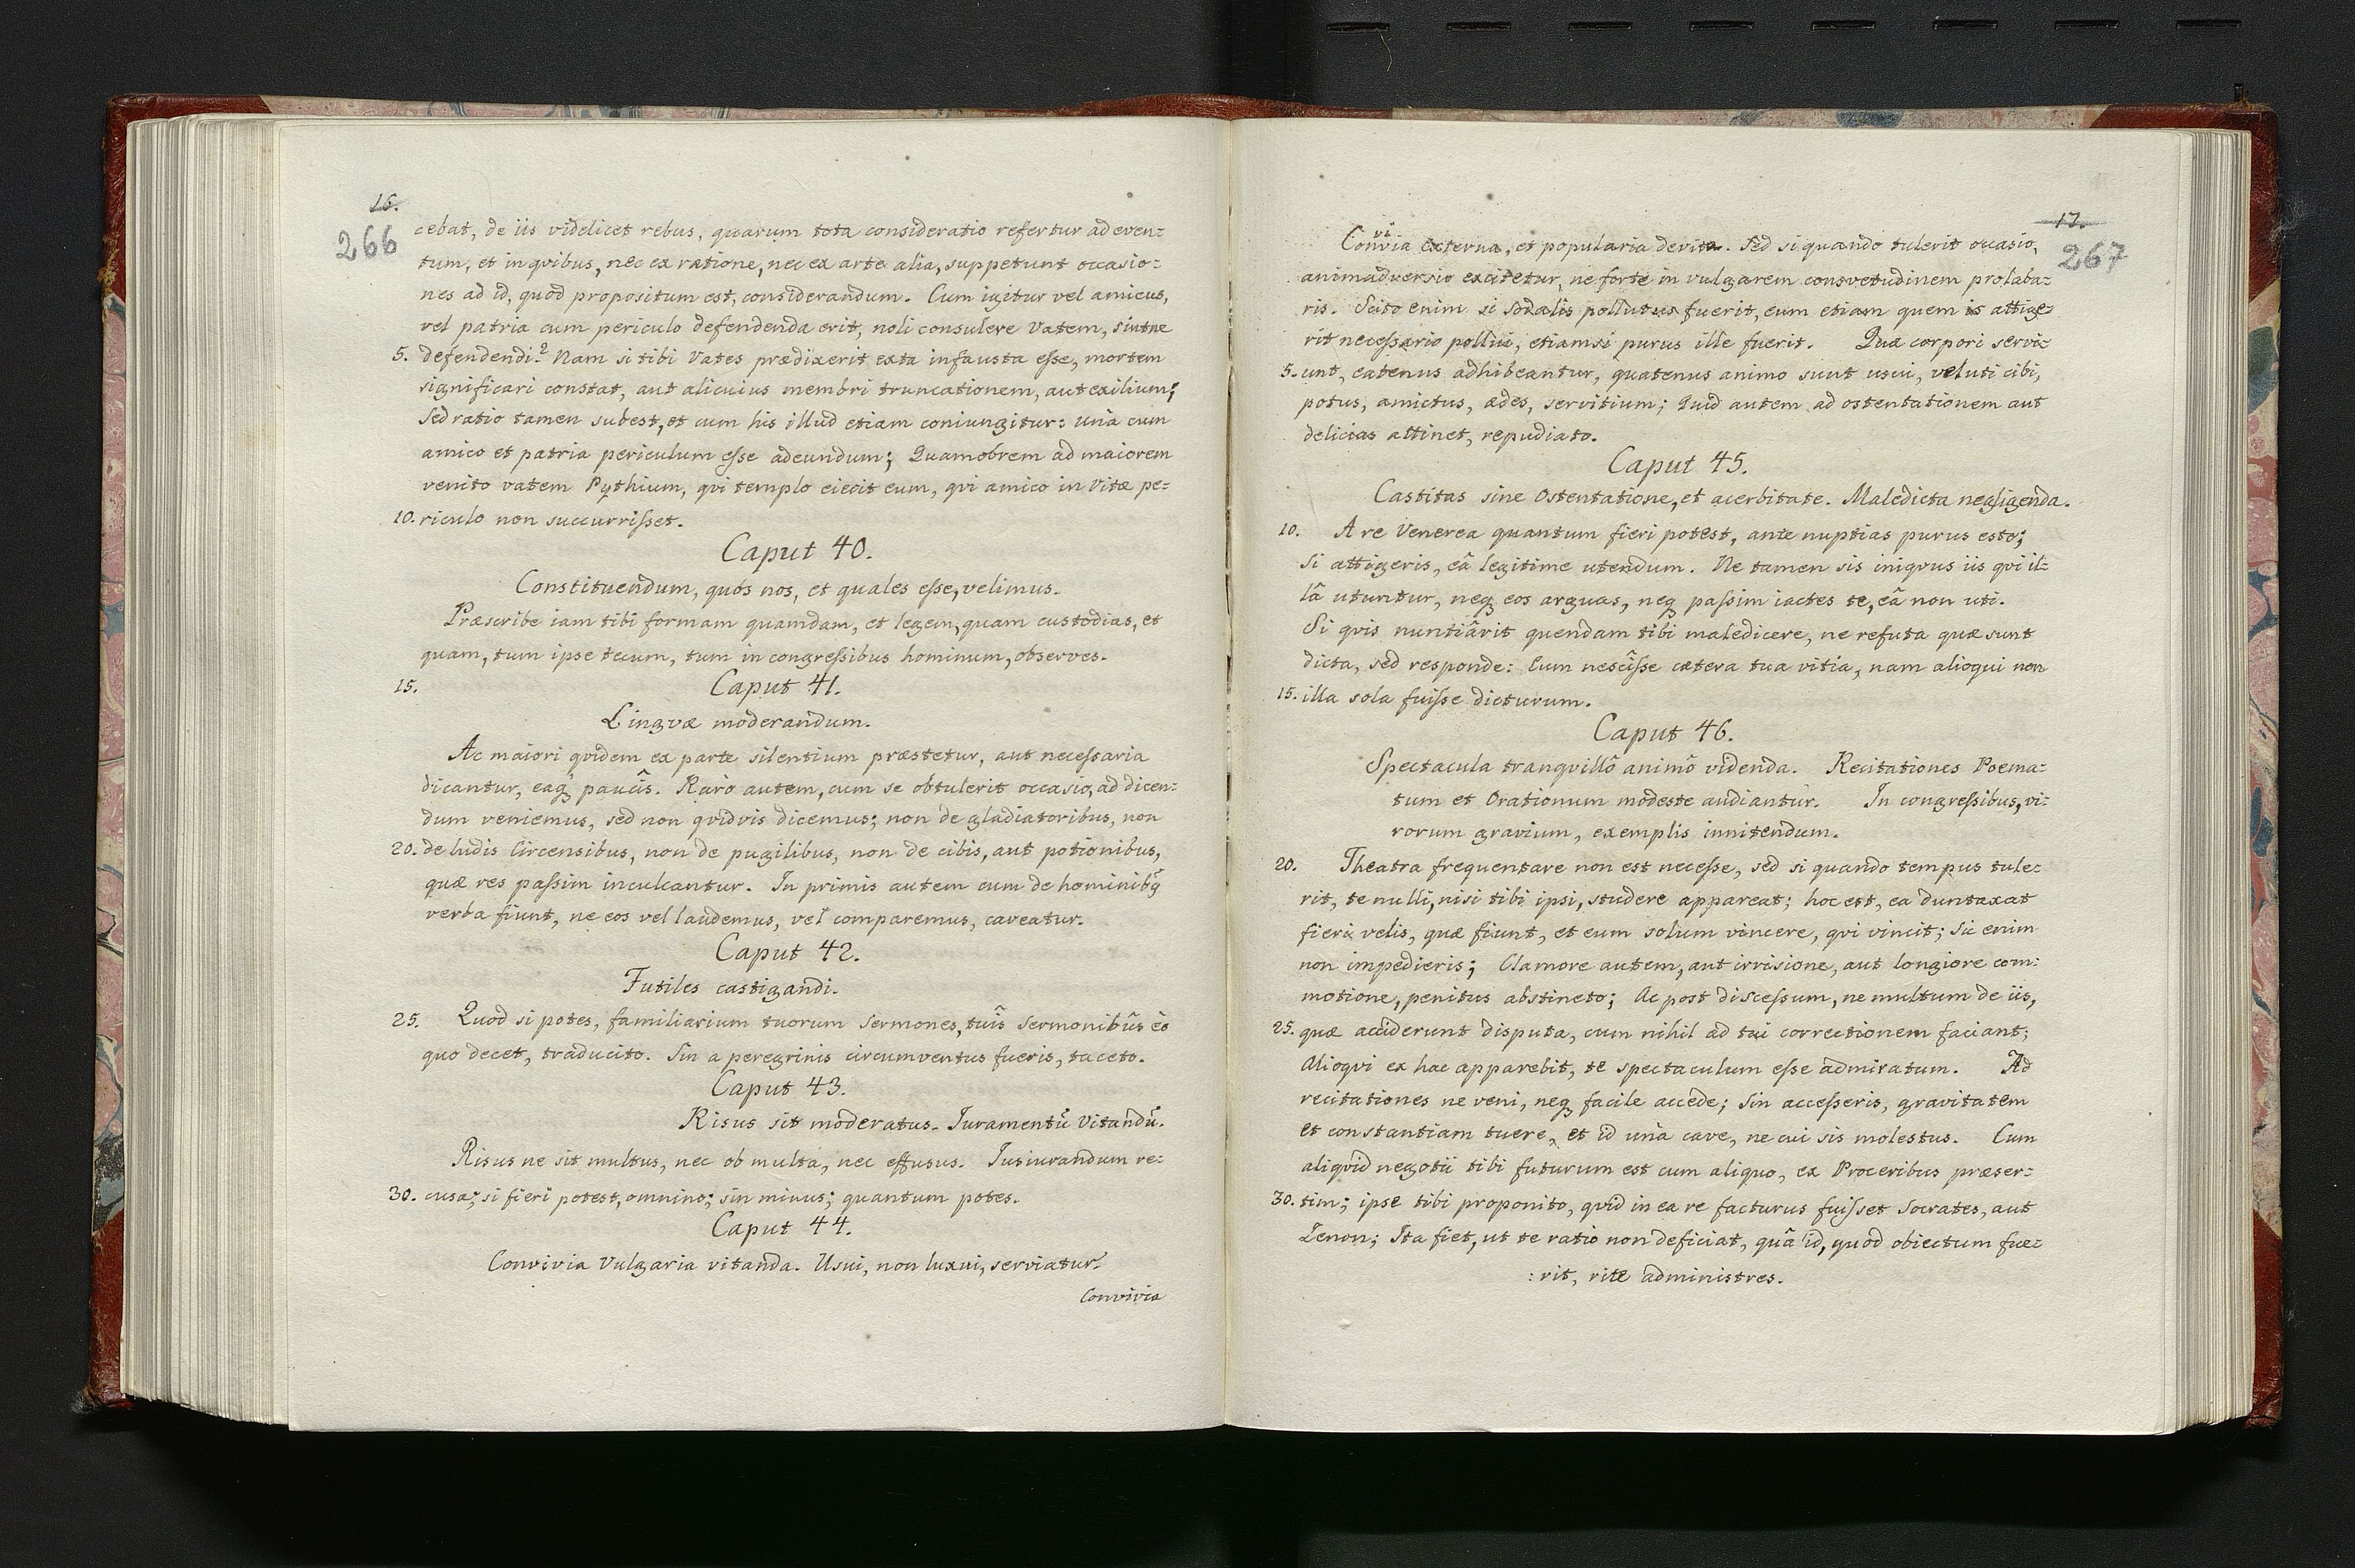 16.
266
cebat, de iis videlicet rebus, quarum tota consideratio refertur ad even:
tum, et in qvibus, nec ex ratione, nec ex arte alia, suppetunt occasio:
nes ad id, quod propositum est, considerandum. Cum igitur vel amicus,
vel patria cum periculo defendenda erit, noli consulere Vatem, sintne
5. defendendi? Nam si tibi Vates prædixerit exta infausta esse, mortem
significari constat, aut alicuius membri truncationem, aut exilium;
Sed ratio tamen subest, et cum his illud etiam coniungitur: unà cum
amico et patria periculum esse adeundum; Quamobrem ad maiorem
venito vatem Pythium, qvi templo eiecit eum, qvi amico in Vitæ pe:
10. riculo non succurrisset.
Caput 40.
Constituendum, quós nos, et quales esse, velimus.
Præscribe iam tibi formam quamdam, et legem, quam custodias, et
quam, tum ipse tecum, tum in congressibus hominum, observes.
15. Caput 41.
Lingvæ moderandum.
Ac maiori qvidem ex parte silentium præstetur, aut necessaria
dicantur, eaq paucîs. Rarò autem, cum se obtulerit occasio, ad dicen:
dum veniemus, sed non qvidvis dicemus; non de gladiatoribus, non
20. de ludis Circensibus, non de pugilibus, non de cibis, aut potionibus,
quæ res passim inculcantur. In primis autem cum de hominibq
verba fiunt, ne eos vel laudemus, vel comparemus, caveatur.
Caput 42.
Futiles castigandi.
25. Quod si potes, familiarium tuorum Sermones, tuîs Sermonibûs eò
quo decet, traducito. Sin a peregrinis circumventus fueris, taceto.
Caput 43.
Risus sit moderatus. Iuramentū Vitandū.
Risus ne sit multus, nec ob multa, nec effusus. Iusiurandum re:
30. cusa; si fieri potest, omnino; sin minus; quantum potes.
Caput 44.
Convivia Vulgaria vitanda. Usui, non luxui, serviatur.
Convivia
17.
267
Convivia externa, et popularia devita. Sed si quando tulerit occasio,
animadversio excitetur, ne forte in vulgarem consvetudinem prolaba:
ris. Scito enim si sodalis pollutus fuerit, eum etiam quem is attige:
rit necessario pollui, etiamsi purus ille fuerit. Quæ corpori servi:
5. unt, eatenus adhibeantur, quatenus animo sunt usui, veluti cibi,
potus, amictus, ædes, servitium; Quid autem ad ostentationem aut
delicias attinet, repudiato.
Caput 45.
Castitas sine Ostentatione, et acerbitate. Maledicta negligenda.
10. A re Venerea quantum fieri potest, ante nuptias purus esto;
Si attigeris, eâ legitime utendum. Ne tamen sis iniqvus iis qvi il:
lâ utuntur, neq eos arguas, neq passim iactes te, eâ non uti.
Si qvis nuntiârit quendam tibi maledicere, ne refuta quæ sunt
dicta, sed responde: Eum nescîsse cætera tua vitia, nam alioqui non
15. illa sola fuisse dicturum.
Caput 46.
Spectacula tranqvillô animô videnda. Recitationes Poema:
tum et Orationum modeste audiantur. In congressibus, vi:
rorum gravium, exemplis innitendum.
20. Theatra frequentare non est necesse, sed si quando tempus tule:
rit, te nulli, nisi tibi ipsi, studere appareat; hoc est, ea duntaxat
fieri velis, quæ fiunt, et eum solum vincere, qvi vincit; Sic enim
non impedieris; Clamore autem, aut irrisione, aut longiore com:
motione, penitus abstineto; Ac post discessum, ne multum de iis,
25. quæ acciderunt disputa, cum nihil ad tui correctionem faciant;
Alioqvi ex hac apparebit, te spectaculum esse admiratum. Ad
recitationes ne veni, neq facile accede; Sin accesseris, gravitatem
et constantiam tuere, et id unà cave, ne cui sis molestus. Cum
aliqvid negotii tibi futurum est cum aliquo, ex Proceribus præser:
30. tim; ipse tibi proponito, qvid in ea re facturus fuisset Socrates, aut
Zenon; Ita fiet, ut te ratio non deficiat, quâ id, quod obiectum fue:
:rit, rite administres.